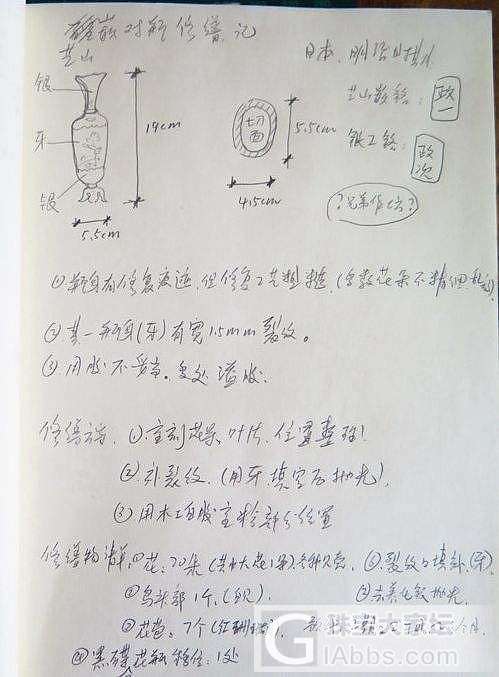 芝山嵌对瓶修缮记
芝山
日本.明治时期
银
牙
银
19cm
5.5cm
切面
5.5cm
4.5cm
芝山嵌铭：政一
银工铭：政次
？兄弟作坊？
①瓶身有修复痕迹.但修复工艺粗糙.(多数花朵不精细
②其一瓶身(牙)有宽1.5mm裂纹。
③.用胶不妥当。多处溢胶.
修缮方案.①.重刻花朵、叶片.位置整理!
②.引裂纹.(用牙.填实后抛光).
③用木工白胶重粘部分位置
修缮物清单.①花:20朵(其中大花1朵)
⑤.裂纹的填补.(牙).
②鸟头部1个.
抛光.
③花苞.7个
个月.
④黑碟
花瓶
1处
珠宝大家坛
GIabbs.com